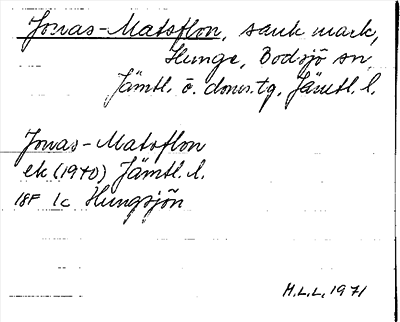 Jonas-Matsflon, sank mark,
Hunge, Bodsjö sn,
Jämtl. ö. doms.tg. Jämtl. l.
Jonas-Matsflon
ek (1940) Jämtl. l.
18F 1c Hungsjön
H.L.L. 1971